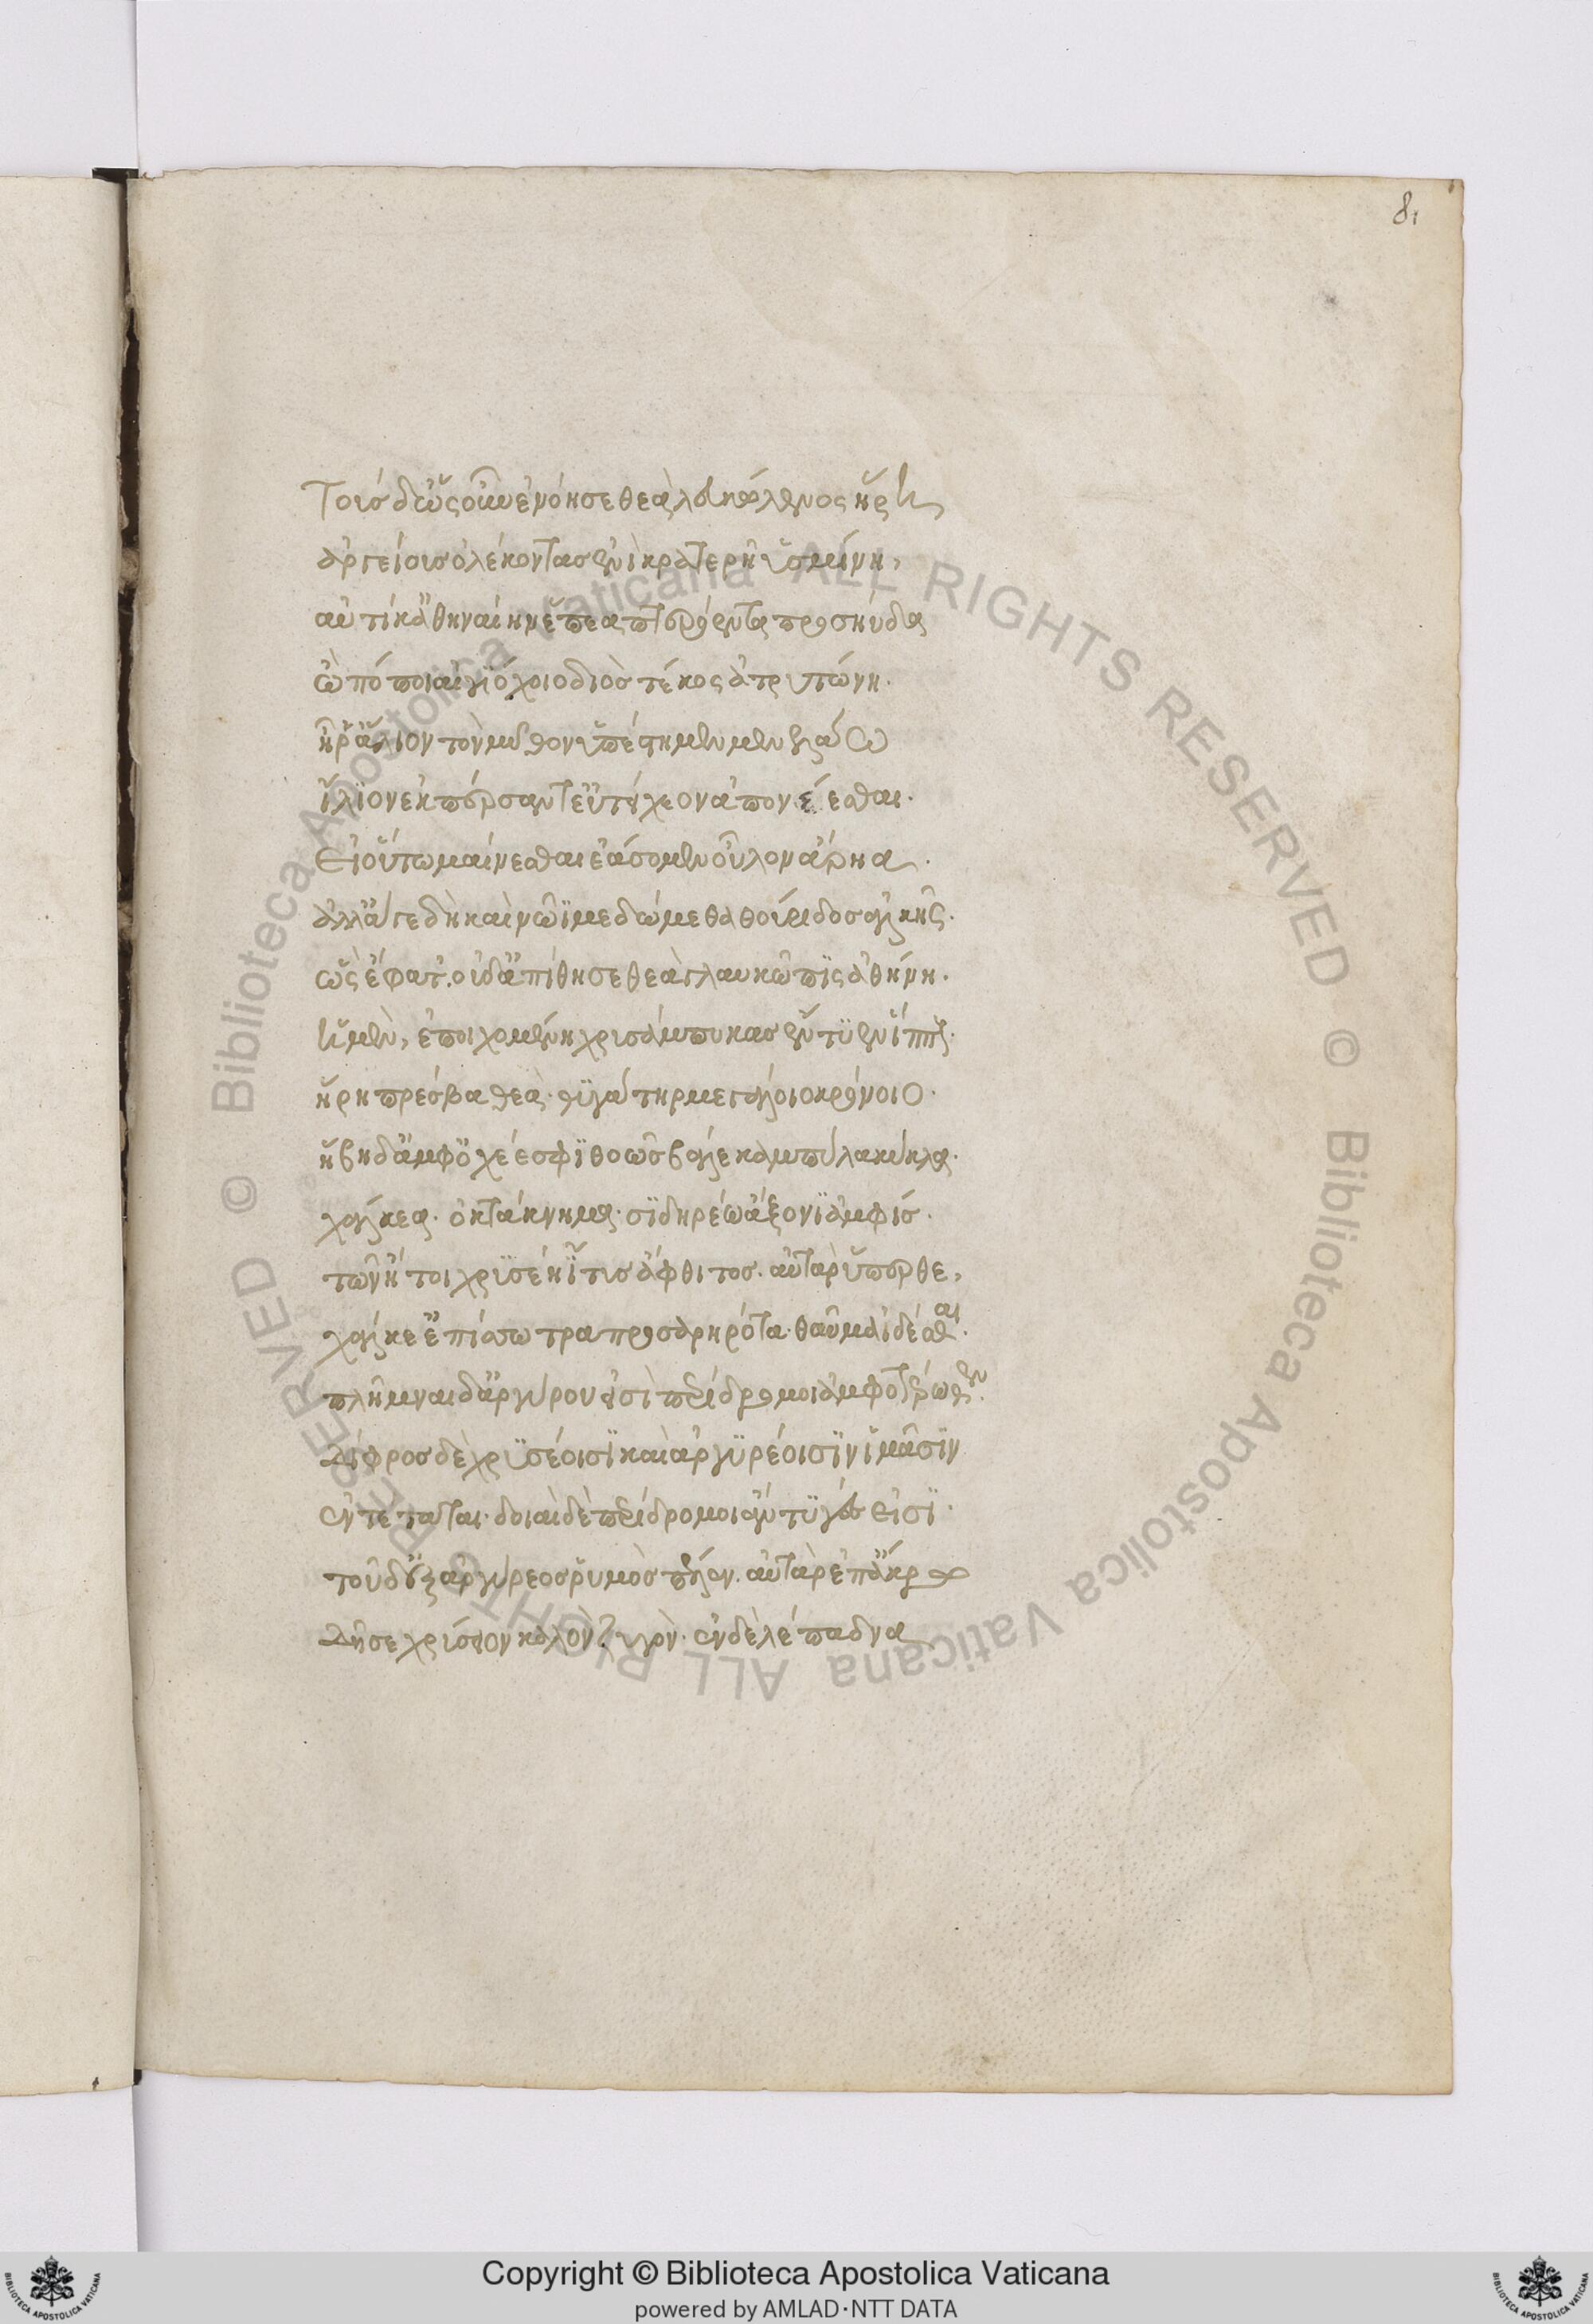 81
Τοὺσ δ' ὡς οὖν ἐνόησε θεὰ λευκώλενος ἥρη
ἀργείουσ ὀλέκοντας ἐνὶ κρατερῆ ὑσμίνη,
αὐτίκ' ἀθηναίην ἔπεα πτερόεντα προσηύδα
ὢ πόποι αἰγιόχοιο διὸσ τέκος ἀτρυτώνη.
ἦ ῥ' ἅλιον τὸν μῦθον ὑπέστημεν μενελάω
ἴλϊον ἐκπέρσαντ' εὐτείχεον ἀπονέεσθαι.
Εἰ οὕτω μαίνεσθαι ἐάσομεν οὖλον ἄρηα.
ἀλλ' ἄγε δὴ καὶ νῶϊ μεδώμεθα θούριδοσ ἀλκῆς.
ὣς ἔφατ'. οὐδ' ἀπίθησε θεὰ γλαυκῶπϊς ἀθήνη.
ἡ μὲν, ἐποιχομένη χρυσάμπυκασ ἔντϋεν ἵππους.
ἥρη πρέσβα θεὰ. θϋγάτηρ μεγάλοιο κρόνοιο.
ἥβη δ' ἀμφ' ὀχέεσφϊ θοῶσ βάλε καμπύλα κύκλα.
χάλκεα. ὀκτάκνημα. σϊδηρέω ἄξονϊ ἀμφίσ.
τῶν ἤτοι χρϋσέη ἴτυσ ἄφθιτοσ. αὐτὰρ ὕπερθε,
χάλκε' ἐπίσσωτρα προσαρηρότα. θαῦμα ἰδέσθαι.
πλῆμναι δ' ἀργύρου εἰσὶ περίδρομοι ἀμφοτέρωθεν.
Δίφροσ δὲ χρϋσέοισϊ καὶ ἀργϋρέοισϊν ἱμᾶσϊν
ἐντέταται. δοιαὶ δὲ περίδρομοι ἄντϋγές εἰσϊ.
τοῦ δ' ἐξ ἀργύρεοσ ῥυμὸσ πέλεν. αὐτὰρ ἐπ' ἄκρω
Δῆσε χρύσειον καλὸν ζυγὸν. ἐν δὲ λέπαδνα
© Biblioteca Apostolica Vaticana ALL RIGHTS RESERVED © Biblioteca Apostolica Vaticana ALL RIGHTS RESERVED
Copyright © Biblioteca Apostolica Vaticana
powered by AMLAD·NTT DATA